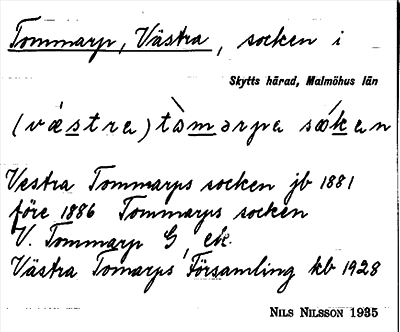 Tommarp, Västra, socken i
Skytts härad, Malmöhus län
(vǽstra) tòmarpa sǽkən
Vestra Tommarps socken jb 1881
före 1886 Tommarps socken
V. Tommarp G, ek.
Västra Tomarps Församling kb 1928
NILS NILSSON 1935